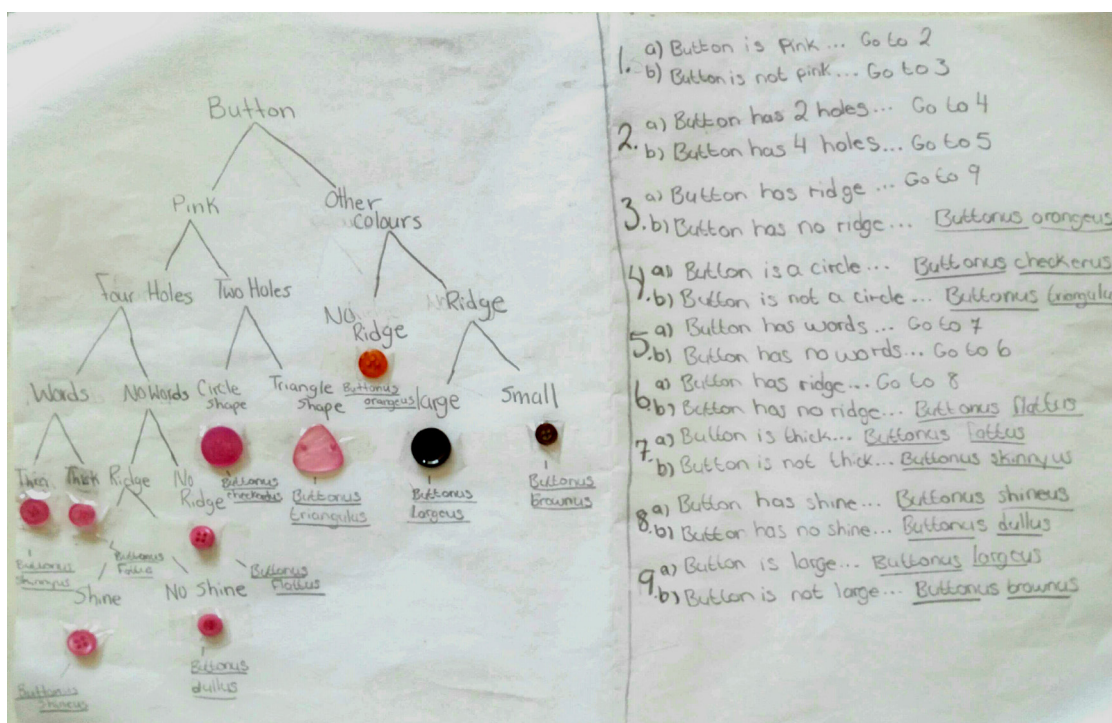 Button
Pink
Other
Colours
Four Holes
Two Holes
No
Ridge
Ridge
Words
No Words
Circle
Shape
Triangle
Shape
Buttonus
orangeus
large
Small
Thin
Thick
Ridge
No
Ridge
Buttonus
checkerus
Buttonus
triangulus
Buttonus
largeus
Buttonus
brownus
Buttonus
skinnyus
Buttonus
Buttonus
flattus
Shine
No Shine
Buttonus
Shineus
Buttonus
dullus
1. a) Button is Pink... Go to 2
b) Button is not pink... Go to 3
2. a) Button has 2 holes... Go to 4
b) Button has 4 holes... Go to 5
3. a) Button has ridge... Go to 9
b) Button has no ridge... Buttonus orangeus
4. a) Button is a circle... Buttonus checkerus
b) Button is not a circle... Buttonus triangulus
5. a) Button has words... Go to 7
b) Button has no words... Go to 6
6. a) Button has ridge... Go to 8
b) Button has no ridge... Buttonus flattus
7. a) Button is thick... Buttonus fattus
b) Button is not thick... Buttonus skinnyus
8. a) Button has shine... Buttonus shineus
b) Button has no shine... Buttonus dullus
9. a) Button is large... Buttonus largeus
b) Button is not large... Buttonus brownus